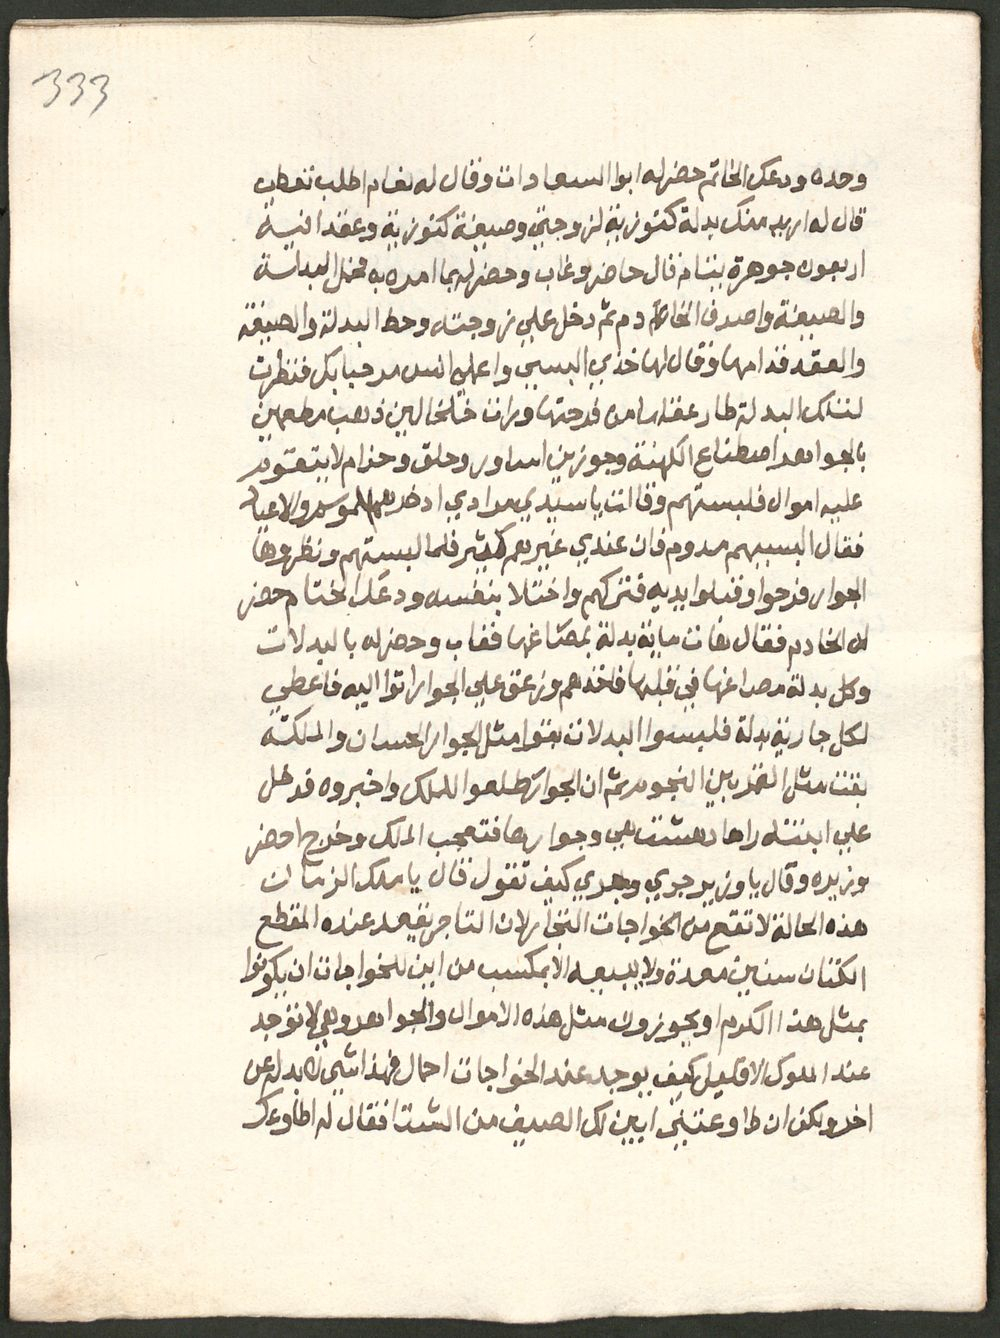 333
وحده ودعك الخاتم حضر له ابوا السعادات وقال له نعام اطلب تعطي
قال له اريد منك بدلة كنوزية لزوجتي وصيغة كنوزية وعقد انيسه
اربعون جوهرة يتام قال حاضر وغاب وحضر له بما امره به فحمل البدلة
والصيغة واصرف الخادم ثم دخل علي زوجته وحط البدلة والصيغة
والعقد قدامها وقال لها خذي البسي واهلا مرحبا بك فنظرت
لتلك البدلة طار عقلها من فرحتها ورات خلخالين ذهب مطعمين
بالجواهر اصطناع الكهنة وجوزين اساور وحلق وحزام لا يتقوم
عليه اموال فلبستهم وقالت يا سيدي مرادي ادخرهم للموسم والاعياد
فقال البسيهم مدوم فان عندي غيرهم كثير فلما لبستهم ونظروها
الجوار فرحوا وقبلوا يديه فتركهم واختلا بنفسه ودعك الختام حضر
له الخادم فقال هات ماية بدلة بمصاغها فغاب وحضر له بالبدلات
وكل بدلة مصاغها في قلبها فاخذهم وزعق علي الجوار اتوا اليه فاعطي
لكل جارية بدلة فلبسوا البدلات بقوا مثل الجوار الحسان والملكه
بقت مثل القمر بين النجوم ثم ان الجوار طلعوا للملك واخبروه فدخل
علي ابنته راها دهشت هي وجوارها فتعجب الملك وخرج احضر
وزيره وقال يا وزير جري وجري كيف تقول قال يا ملك الزمان
هذه الحالة لا تقع من الخواجات التجار لان التاجر يقعد عنده المقطع
الكتان سنين معدة ولا يبيعه الا بمكسب من اين للخواجات ان يكونوا
بمثل هذا الكرم او يحوزون مثل هذه الاموال والجواهر وهي لا توجد
عند الملوك الا قليل كيف يوجد عند الخواجات احمال فهذا شي لا بد له عن
اخر ولكن ان طاوعتني ابين لك الصيف من الشتا فقال له اطاوعك